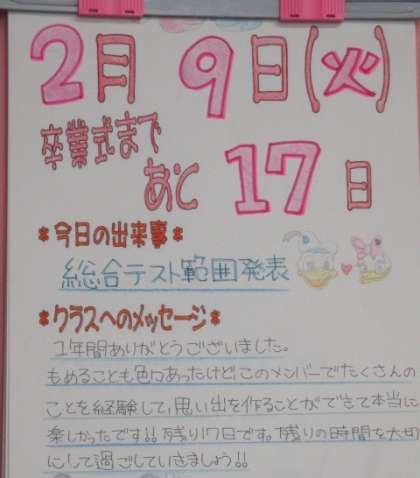 2月 9日(火)
卒業式まで
あと 17日
*今日の出来事*
総合テスト範囲発表
*クラスへのメッセージ*
1年間ありがとうございました。
もめることも色々あったけど、このメンバーでたくさんの
ことを経験して、思い出を作ることができて本当に
楽しかったです!!残り17日です。残りの時間を大切
にして過ごしていきましょう!!